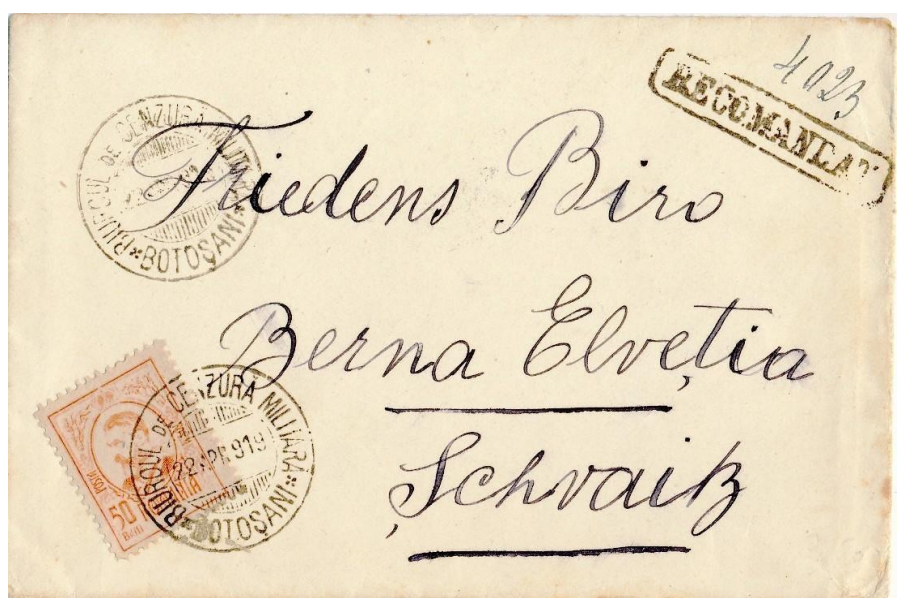 4023
RECOMANDAT
BIUROUL DE CENZURA MILITARA
BOTOȘANI
Friedens Biro
Berna Elveția
Șchvaitz
BIUROUL DE CENZURA MILITARA
22 APR. 919
BOTOȘANI
POSTA
50
BANI